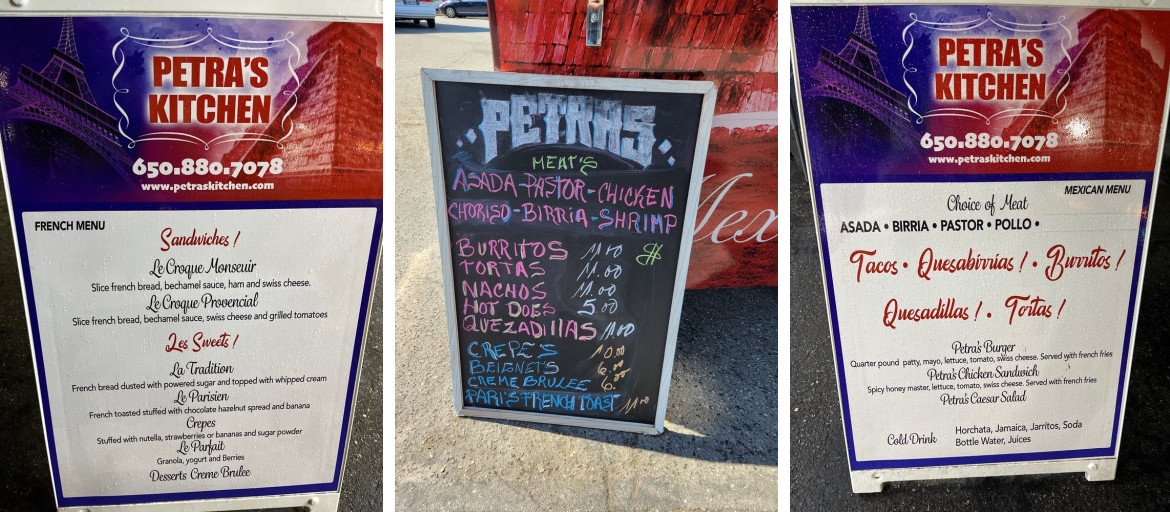 PETRA'S
KITCHEN
650.880.7078
www.petraskitchen.com
FRENCH MENU
Sandwiches !
Le Croque Monseuir
Slice french bread, bechamel sauce, ham and swiss cheese.
Le Croque Provencial
Slice french bread, bechamel sauce, swiss cheese and grilled tomatoes
Les Sweets !
La Tradition
French bread dusted with powered sugar and topped with whipped cream
Le Parisien
French toasted stuffed with chocolate hazelnut spread and banana
Crepes
Stuffed with nutella, strawberries or bananas and sugar powder
Le Parfait
Granola, yogurt and Berries
Desserts Creme Brulee
PETRAS
MEAT'S
ASADA-PASTOR-CHICKEN
CHORISO-BIRRIA-SHRIMP
BURRITOS 11.00
TORTAS 11.00
NACHOS 11.00
HOT DOGS 5.00
QUEZADILLAS 11.00
CREPE'S 10.00
BEIGNET'S 6.00
CREME BRULEE 6.00
PARIS FRENCH TOAST 11.00
Mex
PETRA'S
KITCHEN
650.880.7078
www.petraskitchen.com
MEXICAN MENU
Choice of Meat
ASADA • BIRRIA • PASTOR • POLLO •
Tacos • Quesabirrias ! • Burritos !
Quesadillas ! • Tortas !
Petra's Burger
Quarter pound patty, mayo, lettuce, tomato, swiss cheese. Served with french fries
Petra's Chicken Sandwich
Spicy honey master, lettuce, tomato, swiss cheese. Served with french fries
Petra's Caesar Salad
Cold Drink
Horchata, Jamaica, Jarritos, Soda
Bottle Water, Juices